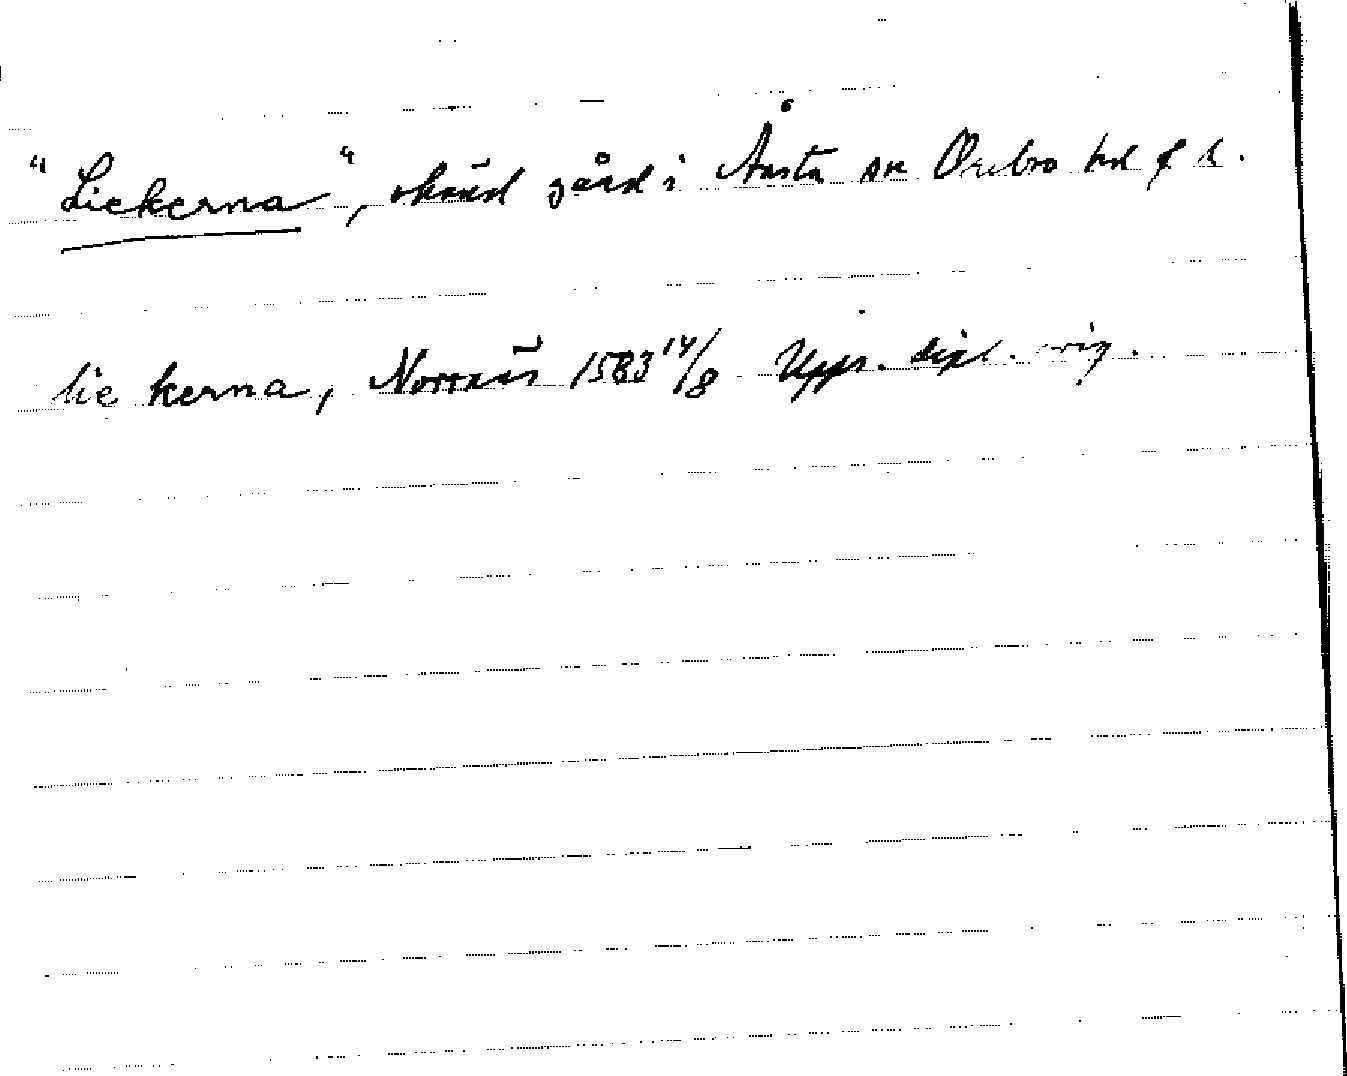 "Liekerna", okänd gård i Ånsta sn Örebro hd f h.
lie kerna, Norrnäs 1583 14/8 Upps. dipl. orig.